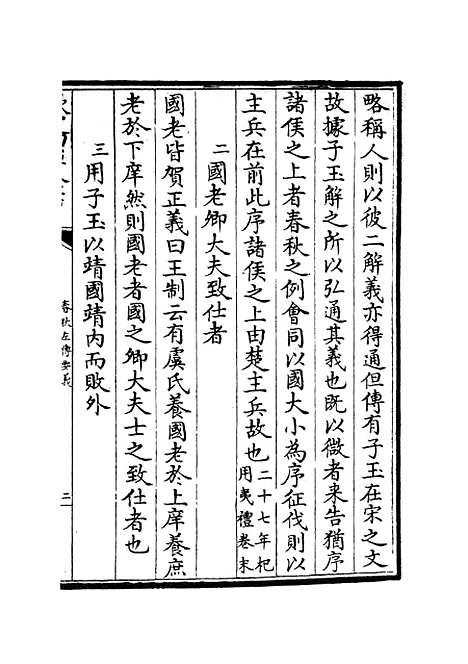 略稱人則以彼二解義亦得通但傳有子玉在宋之文
故據子玉解之所以弘通其義也既以微者来告猶序
諸侯之上者春秋之例會同以國大小為序征伐則以
主兵在前此序諸侯之上由楚主兵故也二十七年杞
用夷禮卷末
二國老卿大夫致仕者
國老皆賀正義曰王制云有虞氏養國老於上庠養庶
老於下庠然則國老者國之卿大夫士之致仕者也
三用子玉以靖國靖内而敗外
春秋左傳要義
三